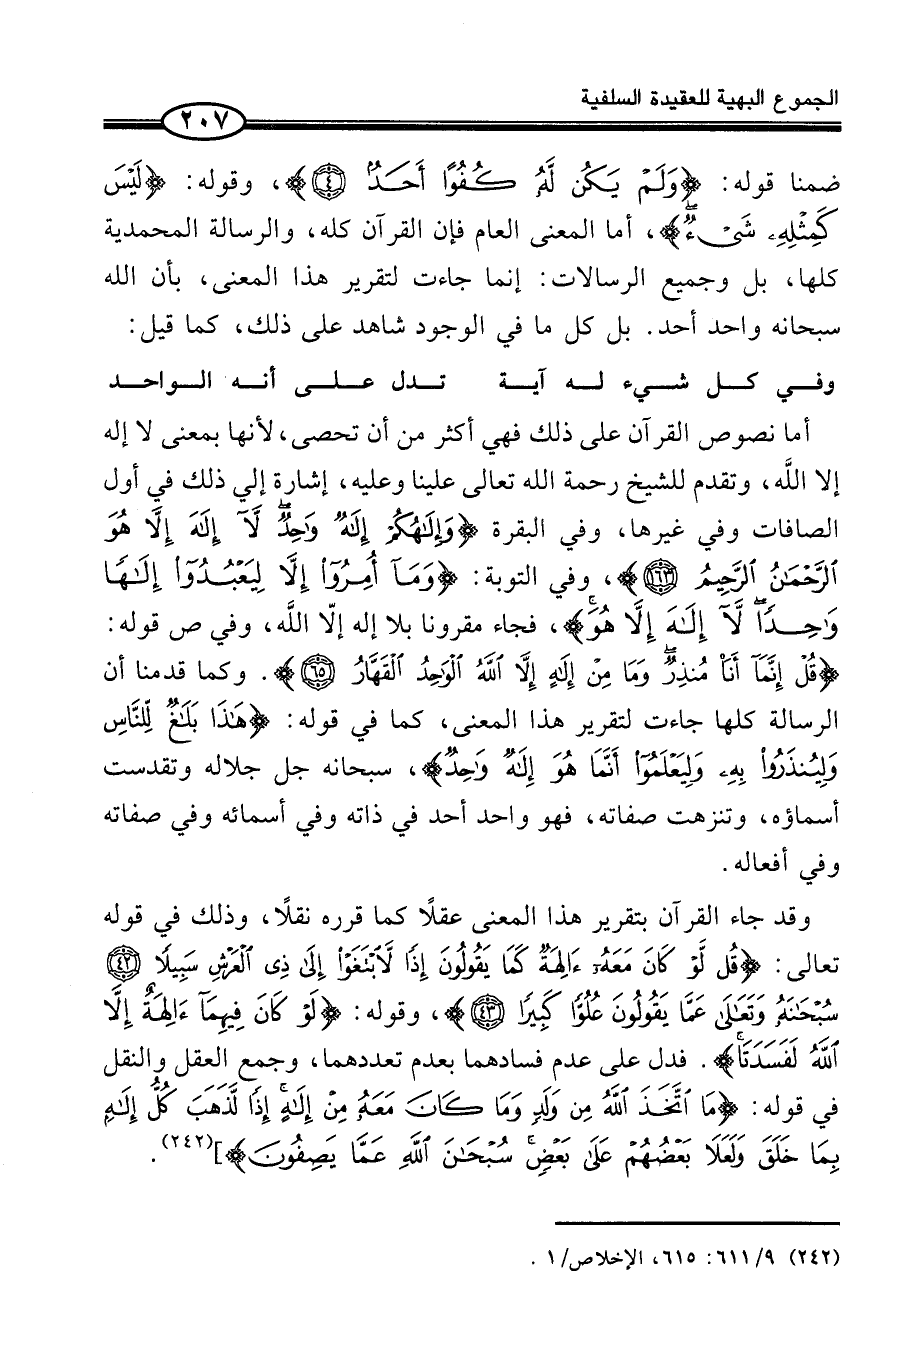 الجموع البهية للعقيدة السلفية
٢٠٧
ضمنا قوله: ﴿وَلَمْ يَكُن لَّهُۥ كُفُوًا أَحَدٌۢ ٤﴾، وقوله: ﴿لَيْسَ
كَمِثْلِهِۦ شَىْءٌۖ﴾، أما المعنى العام فإن القرآن كله، والرسالة المحمدية
كلها، بل وجميع الرسالات: إنما جاءت لتقرير هذا المعنى، بأن الله
سبحانه واحد أحد. بل كل ما في الوجود شاهد على ذلك، كما قيل:
وفـي كـل شـيء لـه آيـة تـدل عـلـى أنـه الـواحـد
أما نصوص القرآن على ذلك فهي أكثر من أن تحصى، لأنها بمعنى لا إله
إلا اللَّه، وتقدم للشيخ رحمة الله تعالى علينا وعليه، إشارة إلي ذلك في أول
الصافات وفي غيرها، وفي البقرة ﴿وَإِلَٰهُكُمْ إِلَٰهٌ وَٰحِدٌۖ لَّآ إِلَٰهَ إِلَّا هُوَ
ٱلرَّحْمَٰنُ ٱلرَّحِيمُ ١٦٣﴾، وفي التوبة: ﴿وَمَآ أُمِرُوٓا۟ إِلَّا لِيَعْبُدُوٓا۟ إِلَٰهًا
وَٰحِدًاۖ لَّآ إِلَٰهَ إِلَّا هُوَۚ﴾، فجاء مقرونا بلا إله إلّا اللَّه، وفي ص قوله:
﴿قُلْ إِنَّمَآ أَنَا۠ مُنذِرٌۖ وَمَا مِنْ إِلَٰهٍ إِلَّا ٱللَّهُ ٱلْوَٰحِدُ ٱلْقَهَّارُ ٦٥﴾. وكما قدمنا أن
الرسالة كلها جاءت لتقرير هذا المعنى، كما في قوله: ﴿هَٰذَا بَلَٰغٌ لِّلنَّاسِ
وَلِيُنذَرُوا۟ بِهِۦ وَلِيَعْلَمُوٓا۟ أَنَّمَا هُوَ إِلَٰهٌ وَٰحِدٌ﴾، سبحانه جل جلاله وتقدست
أسماؤه، وتنزهت صفاته، فهو واحد أحد في ذاته وفي أسمائه وفي صفاته
وفي أفعاله.
وقد جاء القرآن بتقرير هذا المعنى عقلًا كما قرره نقلًا، وذلك في قوله
تعالى: ﴿قُل لَّوْ كَانَ مَعَهُۥٓ ءَالِهَةٌ كَمَا يَقُولُونَ إِذًا لَّٱبْتَغَوْا۟ إِلَىٰ ذِى ٱلْعَرْشِ سَبِيلًا ٤٢
سُبْحَٰنَهُۥ وَتَعَٰلَىٰ عَمَّا يَقُولُونَ عُلُوًّا كَبِيرًا ٤٣﴾، وقوله: ﴿لَوْ كَانَ فِيهِمَآ ءَالِهَةٌ إِلَّا
ٱللَّهُ لَفَسَدَتَاۚ﴾. فدل على عدم فسادهما بعدم تعددهما، وجمع العقل والنقل
في قوله: ﴿مَا ٱتَّخَذَ ٱللَّهُ مِن وَلَدٍ وَمَا كَانَ مَعَهُۥ مِنْ إِلَٰهٍۚ إِذًا لَّذَهَبَ كُلُّ إِلَٰهٍۭ
بِمَا خَلَقَ وَلَعَلَا بَعْضُهُمْ عَلَىٰ بَعْضٍۚ سُبْحَٰنَ ٱللَّهِ عَمَّا يَصِفُونَ﴾](٢٤٢).
(٢٤٢) ٩/ ٦١١: ٦١٥، الإخلاص/ ١ .